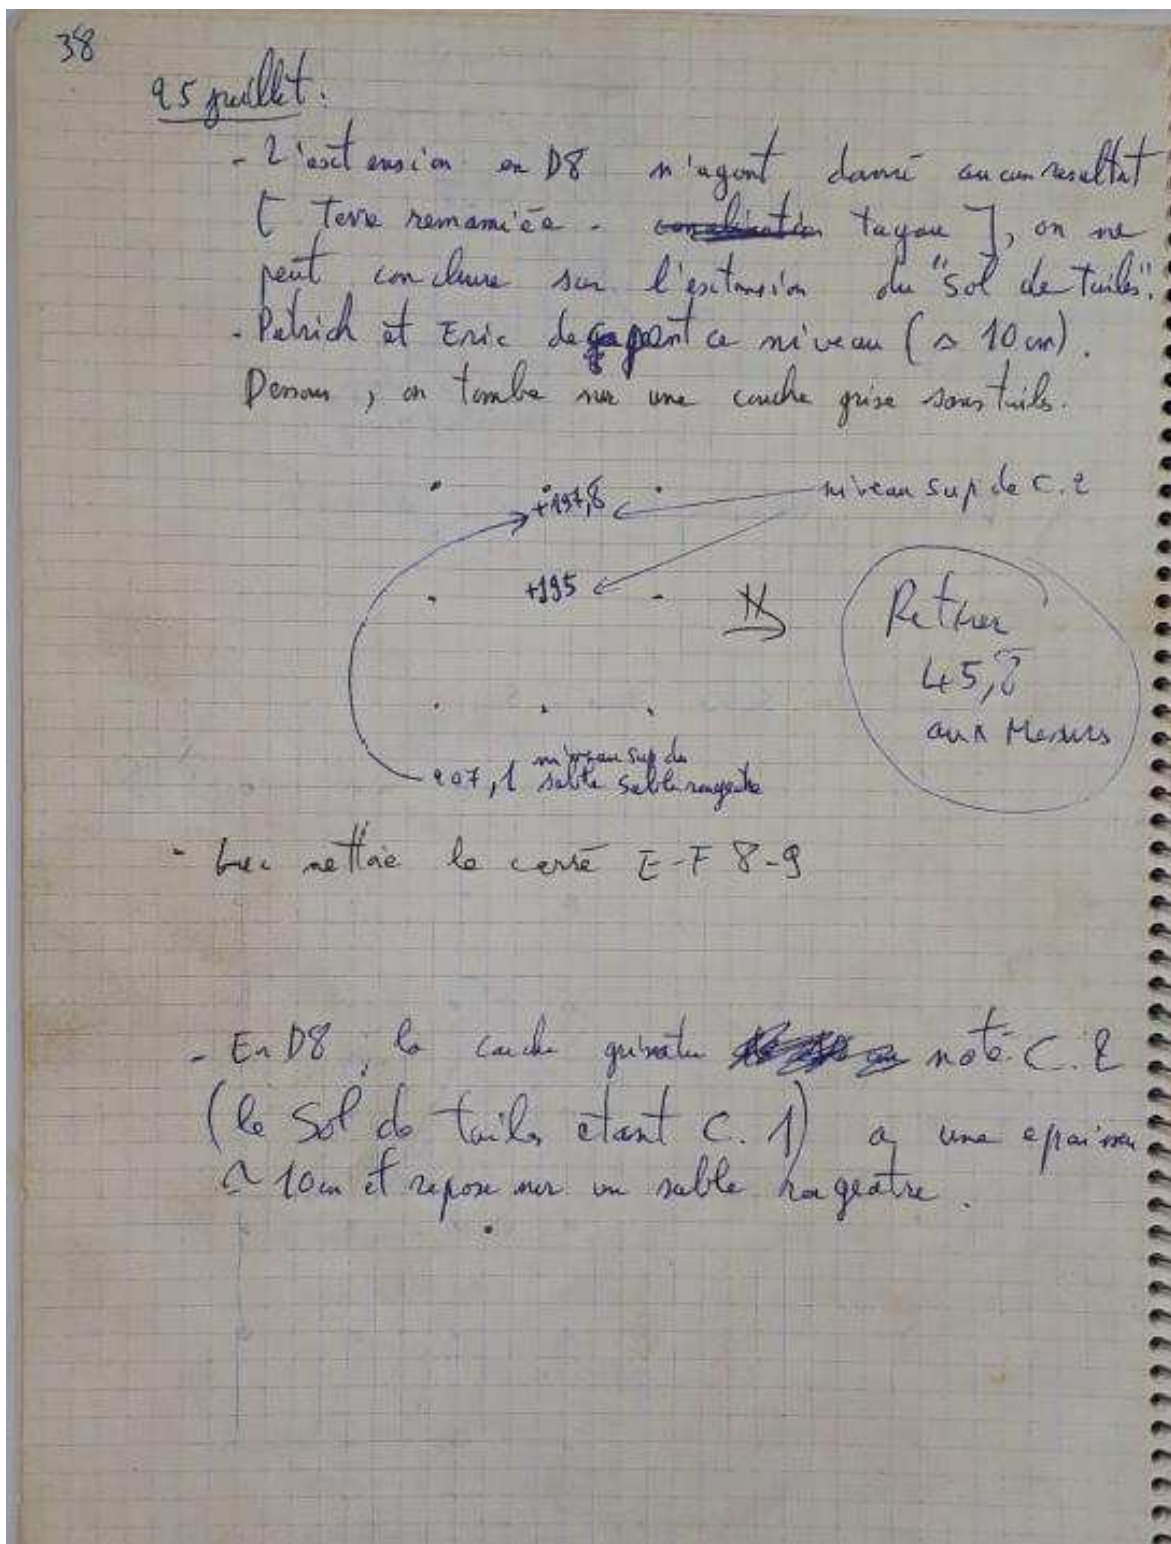 38
25 juillet :
- L'extension en D8 n'ayant donné aucun resultat
[ Terre remaniée - tuyau ], on ne
peut conclure sur l'extension du "Sol de tuiles".
- Patrick et Eric degagent ce niveau (≃ 10 cm).
Dessous, on tombe sur une couche grise sans tuiles.
+197,8 niveau sup de C.2
+195
N
Retirer
45,8
aux Mesures
207,1 niveau sup du
sable sable rougeatre
- Luc nettoie le carré E-F 8-9
- En D8, la couche grisatre noté C.2
(le Sol de tuiles etant C.1) a une epaisseur
≃ 10 cm et repose sur un sable rougeatre.